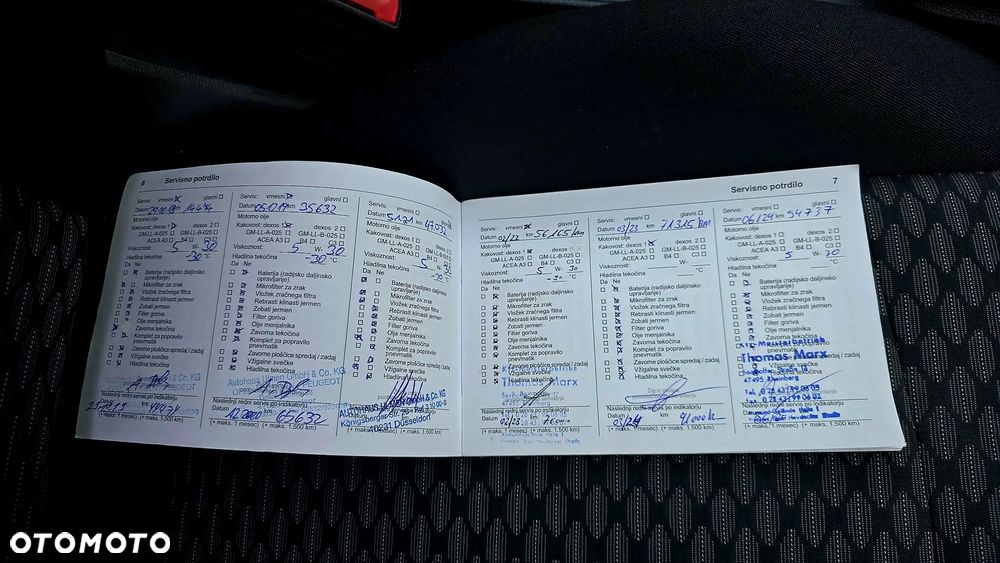 6 Servisno potrdilo
Servis: vmesni glavni
Datum km
Motorno olje
Kakovost: dexos 1 dexos 2
GM-LL-A-025 GM-LL-B-025
ACEA A3 B4 C3
Viskoznost: 5 W- 30
Hladilna tekočina -30 °C
Da Ne
Baterija (radijsko daljinsko
upravljanje)
Mikrofilter za zrak
Vložek zračnega filtra
Rebrasti klinasti jermen
Zobati jermen
Filter goriva
Olje menjalnika
Zavorna tekočina
Komplet za popravilo
pnevmatik
Zavorne ploščice spredaj / zadaj
Vžigalne svečke
Hladilna tekočina
Naslednji redni servis po indikatorju
(+ maks. 1 mesec) (+ maks. 1.500 km)
Servis: vmesni glavni
Datum 05.12.19 km 35632
Motorno olje
Kakovost: dexos 1 dexos 2
GM-LL-A-025 GM-LL-B-025
ACEA A3 B4 C3
Viskoznost: 5 W- 30
Hladilna tekočina -30 °C
Da Ne
Baterija (radijsko daljinsko
upravljanje)
Mikrofilter za zrak
Vložek zračnega filtra
Rebrasti klinasti jermen
Zobati jermen
Filter goriva
Olje menjalnika
Zavorna tekočina
Komplet za popravilo
pnevmatik
Zavorne ploščice spredaj / zadaj
Vžigalne svečke
Naslednji redni servis po indikatorju
12.2020 65632
(+ maks. 1 mesec) (+ maks. 1.500 km)
Servis: vmesni glavni
Datum 5.1.21 km 47.032
Motorno olje
Kakovost: dexos 1
GM-LL-A-025
ACEA A3 B4
Viskoznost: 5
Hladilna tekočina
Da Ne
Baterija (radijsko daljinsko
upravljanje)
Mikrofilter za zrak
Vložek zračnega filtra
Rebrasti klinasti jermen
Zobati jermen
Filter goriva
Olje menjalnika
Zavorna tekočina
Komplet za popravilo
pnevmatik
Vžigalne svečke
& Co. KG
40231 Düsseldorf
(+ maks. 1 mesec) (+ maks. 1.500 km)
Servisno potrdilo 7
Servis: vmesni glavni
Datum 02/22 km 56.165 km
Motorno olje
Kakovost: dexos 1 dexos 2
GM-LL-A-025 GM-LL-B-025
ACEA A3 B4 C3
Viskoznost: 5 W- 30
Hladilna tekočina -30 °C
Da Ne
Baterija (radijsko daljinsko
upravljanje)
Mikrofilter za zrak
Vložek zračnega filtra
Rebrasti klinasti jermen
Zobati jermen
Filter goriva
Olje menjalnika
Zavorna tekočina
Komplet za popravilo
pnevmatik
Zavorne ploščice spredaj / zadaj
Vžigalne svečke
Hladilna tekočina
Thomas Marx
Datum
(+ maks. 1.500 km)
Servis: vmesni glavni
Datum 03/23 km 71315 km
Motorno olje
Kakovost: dexos 1 dexos 2
GM-LL-A-025 GM-LL-B-025
ACEA A3 B4 C3
Viskoznost: W-
Hladilna tekočina °C
Da Ne
Baterija (radijsko daljinsko
upravljanje)
Mikrofilter za zrak
Vložek zračnega filtra
Rebrasti klinasti jermen
Zobati jermen
Filter goriva
Olje menjalnika
Zavorna tekočina
Komplet za popravilo
pnevmatik
Zavorne ploščice spredaj / zadaj
Vžigalne svečke
Hladilna tekočina
Naslednji redni servis po indikatorju
Datum 03/24 km
(+ maks. 1 mesec) (+ maks. 1.500 km)
Servis: vmesni glavni
Datum 06.124 km 94737
Motorno olje
Kakovost: dexos 1 dexos 2
GM-LL-A-025 GM-LL-B-025
ACEA A3 B4 C3
Viskoznost: 5 W- 30
Hladilna tekočina °C
Da Ne
Baterija (radijsko daljinsko
upravljanje)
Mikrofilter za zrak
Vložek zračnega filtra
Rebrasti klinasti jermen
Zobati jermen
Filter goriva
Olje menjalnika
Zavorna tekočina
Kfz-Meisterbetrieb
Thomas Marx
47495 Rheinberg
Naslednji redni servis po indikatorju
(+ maks. 1 mesec) (+ maks. 1.500 km)
OTOMOTO